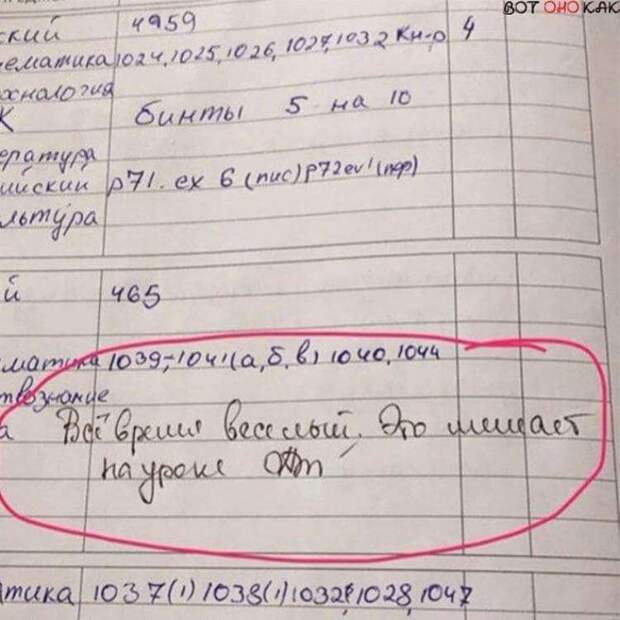 ВОТ ОНО КАК
ский 4959
ематика 1024, 1025, 1026, 1027, 1032 Кн-р 4
хналогия
К бинты 5 на 10
ература
ийский p71. ex 6 (пис) p72 ex1 (пер)
льтура
й 465
матика 1039, 1041 (а, б, в) 1040, 1044
твознание
а Всё время веселый. Это мешает
на уроке
тика 1037(1) 1038(1) 1032, 1028, 1047